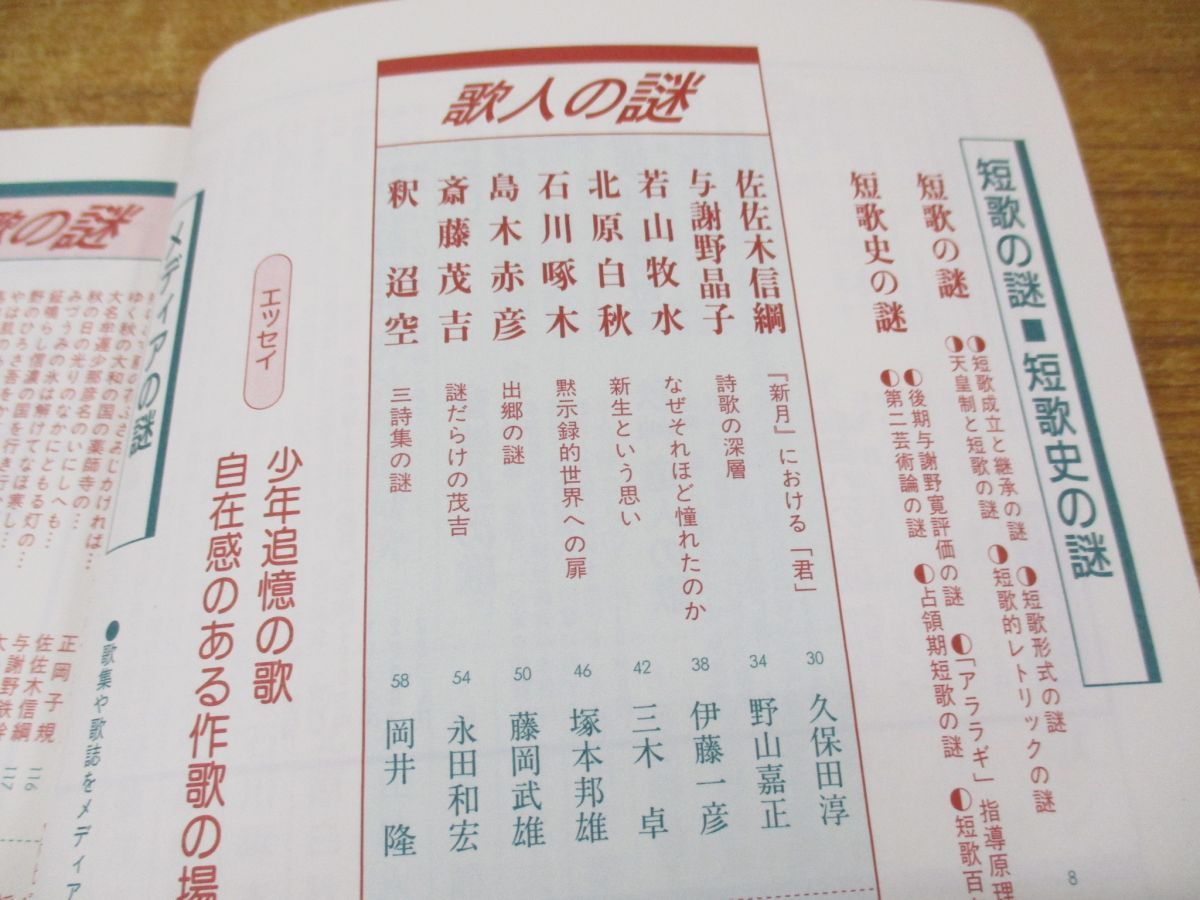 短歌の謎■短歌史の謎
短歌の謎
◐短歌成立と継承の謎 ◐短歌形式の謎
◐天皇制と短歌の謎 ◐短歌的レトリックの謎
短歌史の謎
◐後期与謝野寛評価の謎 ◐「アララギ」指導原理
◐第二芸術論の謎 ◐占領期短歌の謎 ◐短歌百
8
歌人の謎
佐佐木信綱 『新月』における「君」 30 久保田淳
与謝野晶子 詩歌の深層 34 野山嘉正
若山牧水 なぜそれほど憧れたのか 38 伊藤一彦
北原白秋 新生という思い 42 三木 卓
石川啄木 黙示録的世界への扉 46 塚本邦雄
島木赤彦 出郷の謎 50 藤岡武雄
斎藤茂吉 謎だらけの茂吉 54 永田和宏
釈 迢空 三詩集の謎 58 岡井 隆
エッセイ
少年追憶の歌
自在感のある作歌の場
メディアの謎
●歌集や歌誌をメディア
の謎
ゆく秋の大和の国の
大名牟遅少那彦名のいにしへも…
秋の日の光りのなかにともる灯の…
みづうみの氷は解けてなほ寒し…
正岡子規 116
佐佐木信綱 117
与謝野鉄幹